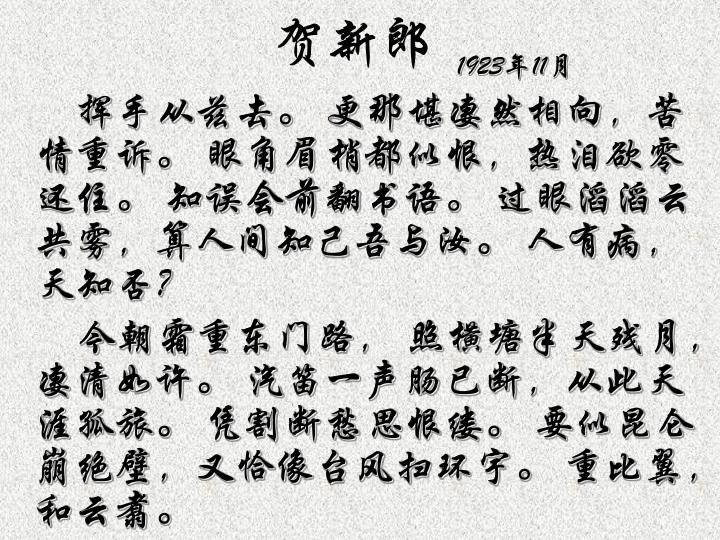 贺新郎
1923年11月
挥手从兹去。更那堪凄然相向，苦
情重诉。眼角眉梢都似恨，热泪欲零
还住。知误会前翻书语。过眼滔滔云
共雾，算人间知己吾与汝。人有病，
天知否？
今朝霜重东门路，照横塘半天残月，
凄清如许。汽笛一声肠已断，从此天
涯孤旅。凭割断愁思恨缕。要似昆仑
崩绝壁，又恰像台风扫环宇。重比翼，
和云翥。